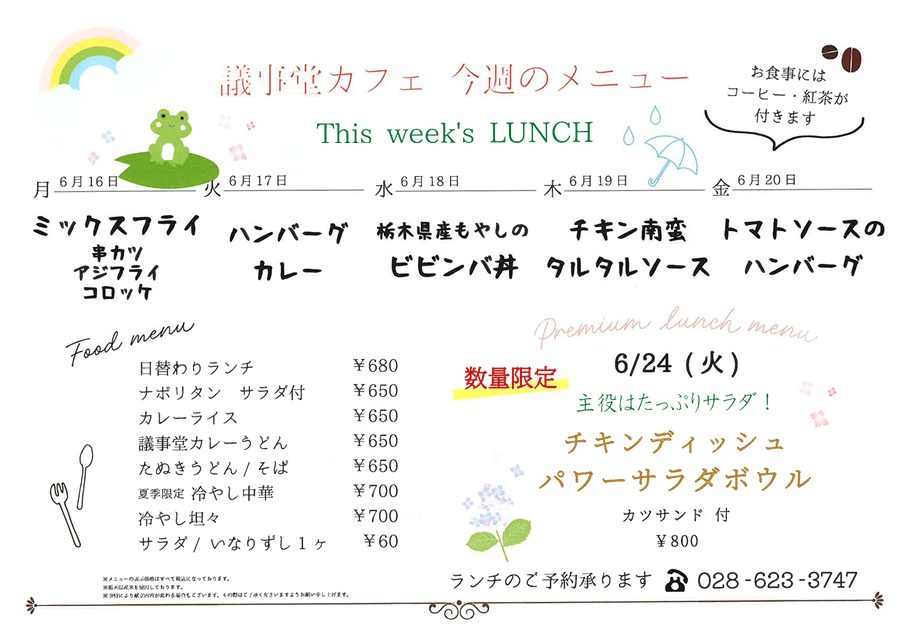 議事堂カフェ 今週のメニュー
This week's LUNCH
お食事には
コーヒー・紅茶が
付きます
月 6月16日
火 6月17日
水 6月18日
木 6月19日
金 6月20日
ミックスフライ
串カツ
アジフライ
コロッケ
ハンバーグ
カレー
栃木県産もやしの
ビビンバ丼
チキン南蛮
タルタルソース
トマトソースの
ハンバーグ
Food menu
日替わりランチ ¥680
ナポリタン サラダ付 ¥650
カレーライス ¥650
議事堂カレーうどん ¥650
たぬきうどん/そば ¥650
夏季限定 冷やし中華 ¥700
冷やし坦々 ¥700
サラダ/いなりずし1ヶ ¥60
Premium lunch menu
数量限定
6/24(火)
主役はたっぷりサラダ!
チキンディッシュ
パワーサラダボウル
カツサンド 付
¥800
※メニューの表示価格はすべて税込になっております。
※栃木県産米を使用しております。
※事情により献立内容が変わる場合もございます。その際はご了承くださいますようお願い申し上げます。
ランチのご予約承ります ☎ 028-623-3747